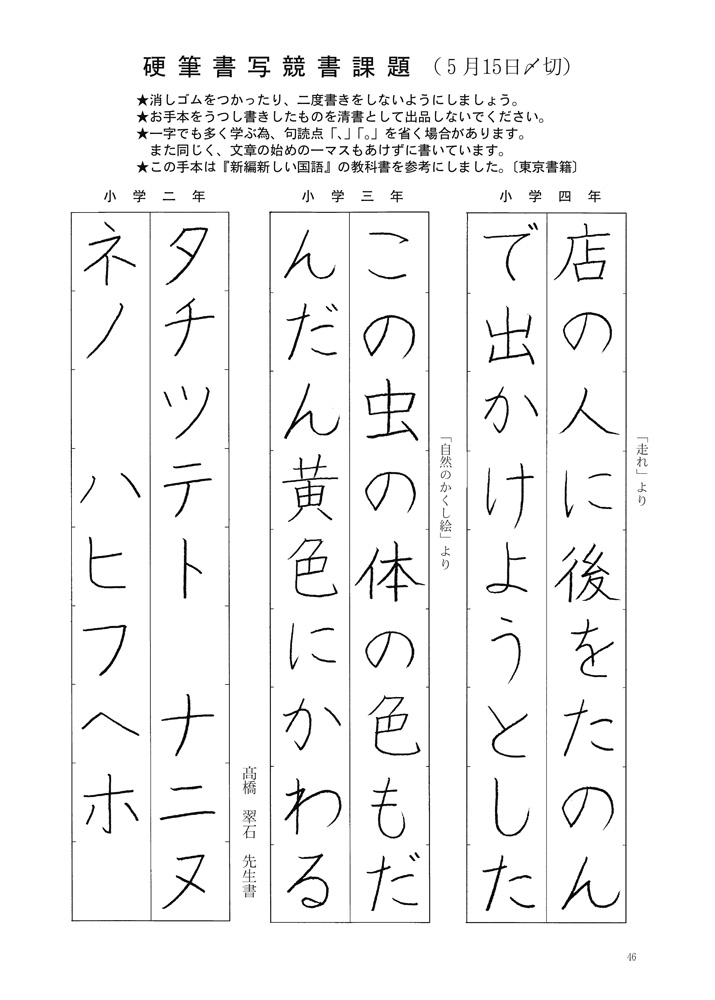 硬筆書写競書課題（5月15日〆切）
★消しゴムをつかったり、二度書きをしないようにしましょう。
★お手本をうつし書きしたものを清書として出品しないでください。
★一字でも多く学ぶ為、句読点「、」「。」を省く場合があります。
また同じく、文章の始めの一マスもあけずに書いています。
★この手本は『新編新しい国語』の教科書を参考にしました。〔東京書籍〕
小学四年
「走れ」より
店の人に後をたのん
で出かけようとした
小学三年
「自然のかくし絵」より
この虫の体の色もだ
んだん黄色にかわる
小学二年
髙橋 翠石 先生書
タチツテト ナニヌ
ネノ ハヒフヘホ
46